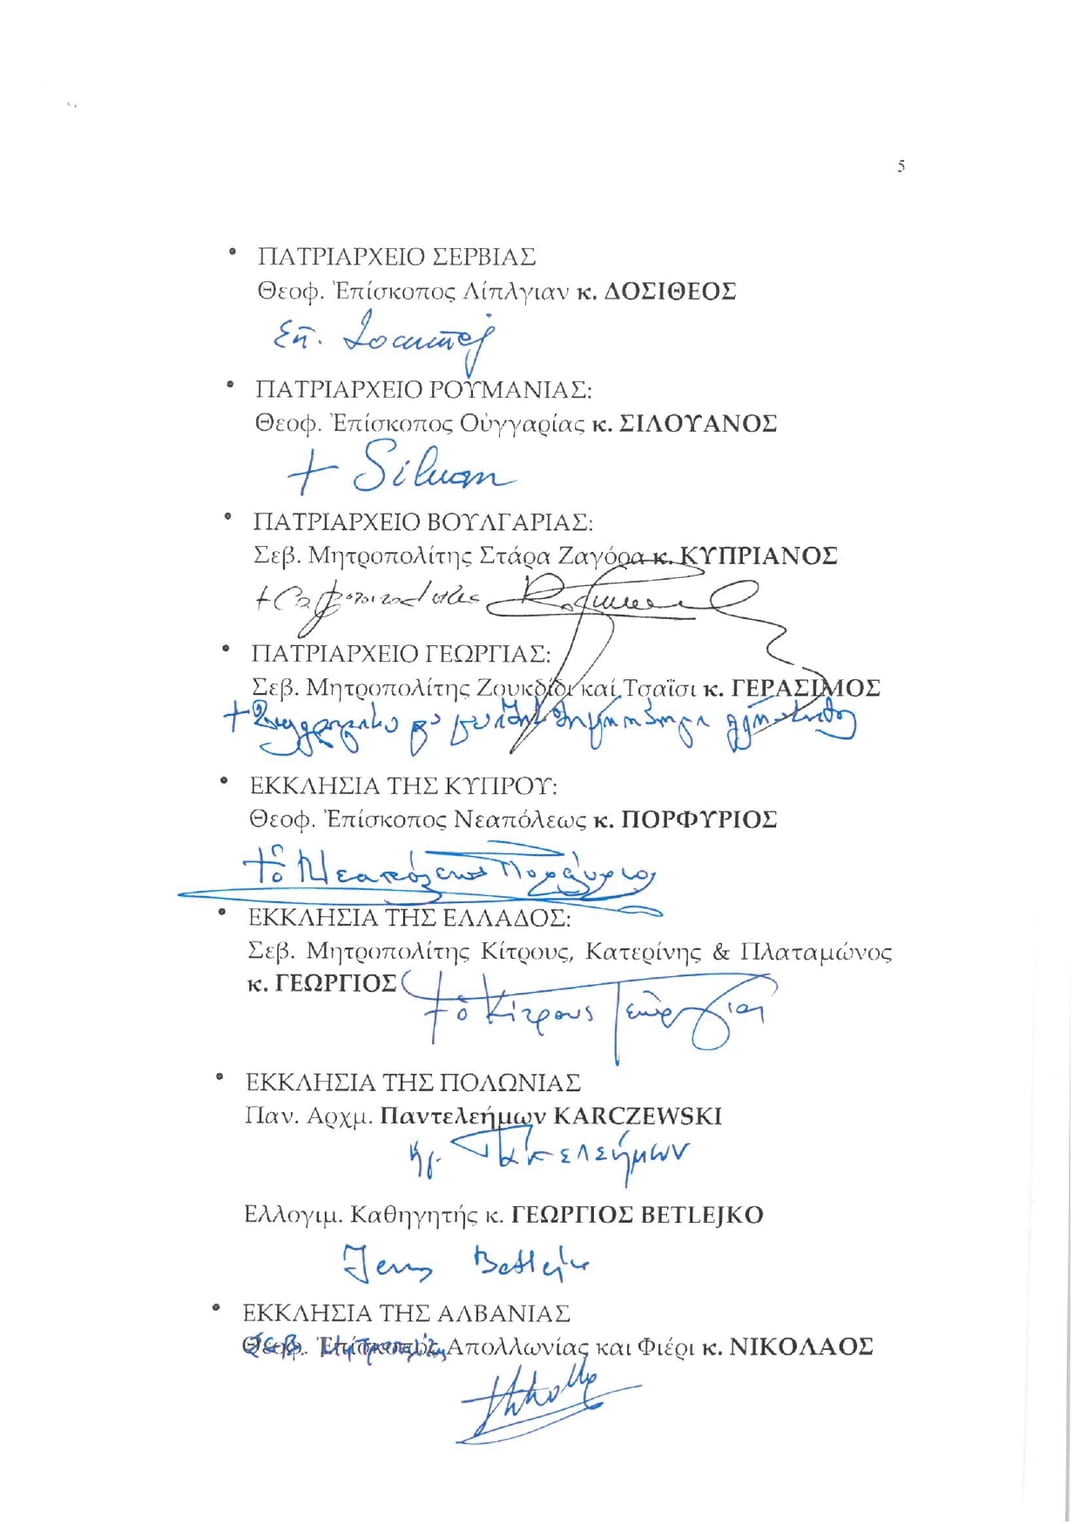 5
• ΠΑΤΡΙΑΡΧΕΙΟ ΣΕΡΒΙΑΣ
Θεοφ. Ἐπίσκοπος Λίπλγιαν κ. ΔΟΣΙΘΕΟΣ
• ΠΑΤΡΙΑΡΧΕΙΟ ΡΟΥΜΑΝΙΑΣ:
Θεοφ. Ἐπίσκοπος Οὑγγαρίας κ. ΣΙΛΟΥΑΝΟΣ
+ Siluan
• ΠΑΤΡΙΑΡΧΕΙΟ ΒΟΥΛΓΑΡΙΑΣ:
Σεβ. Μητροπολίτης Στάρα Ζαγόρα κ. ΚΥΠΡΙΑΝΟΣ
• ΠΑΤΡΙΑΡΧΕΙΟ ΓΕΩΡΓΙΑΣ:
Σεβ. Μητροπολίτης Ζουκδίδι καί Τσαΐσι κ. ΓΕΡΑΣΙΜΟΣ
• ΕΚΚΛΗΣΙΑ ΤΗΣ ΚΥΠΡΟΥ:
Θεοφ. Ἐπίσκοπος Νεαπόλεως κ. ΠΟΡΦΥΡΙΟΣ
+ ὁ Νεαπόλεως Πορφύριος
• ΕΚΚΛΗΣΙΑ ΤΗΣ ΕΛΛΑΔΟΣ:
Σεβ. Μητροπολίτης Κίτρους, Κατερίνης & Πλαταμώνος
κ. ΓΕΩΡΓΙΟΣ
+ ὁ Κίτρους Γεώργιος
• ΕΚΚΛΗΣΙΑ ΤΗΣ ΠΟΛΩΝΙΑΣ
Παν. Αρχμ. Παντελεήμων KARCZEWSKI
Παντελεήμων
Ελλογιμ. Καθηγητής κ. ΓΕΩΡΓΙΟΣ BETLEJKO
• ΕΚΚΛΗΣΙΑ ΤΗΣ ΑΛΒΑΝΙΑΣ
Θεοφ. Ἐπίσκοπος Απολλωνίας και Φιέρι κ. ΝΙΚΟΛΑΟΣ